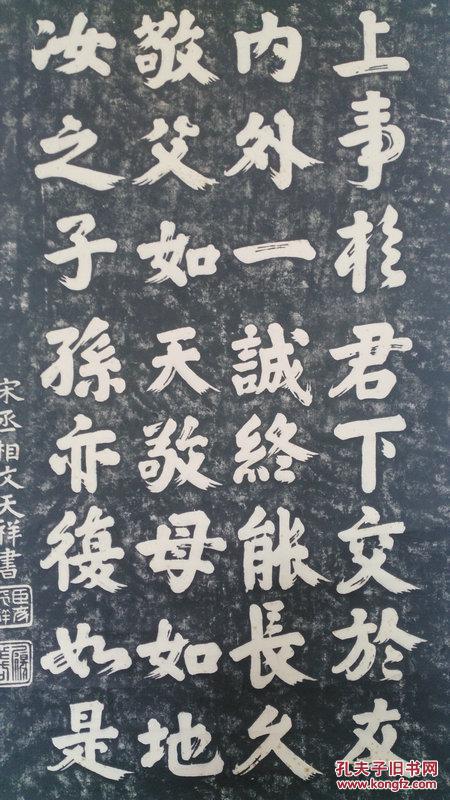 上事於君下交於友
内外一誠終能長久
敬父如天敬母如地
汝之子孫亦復如是
宋丞相文天祥書
孔夫子旧书网
www.kongfz.com